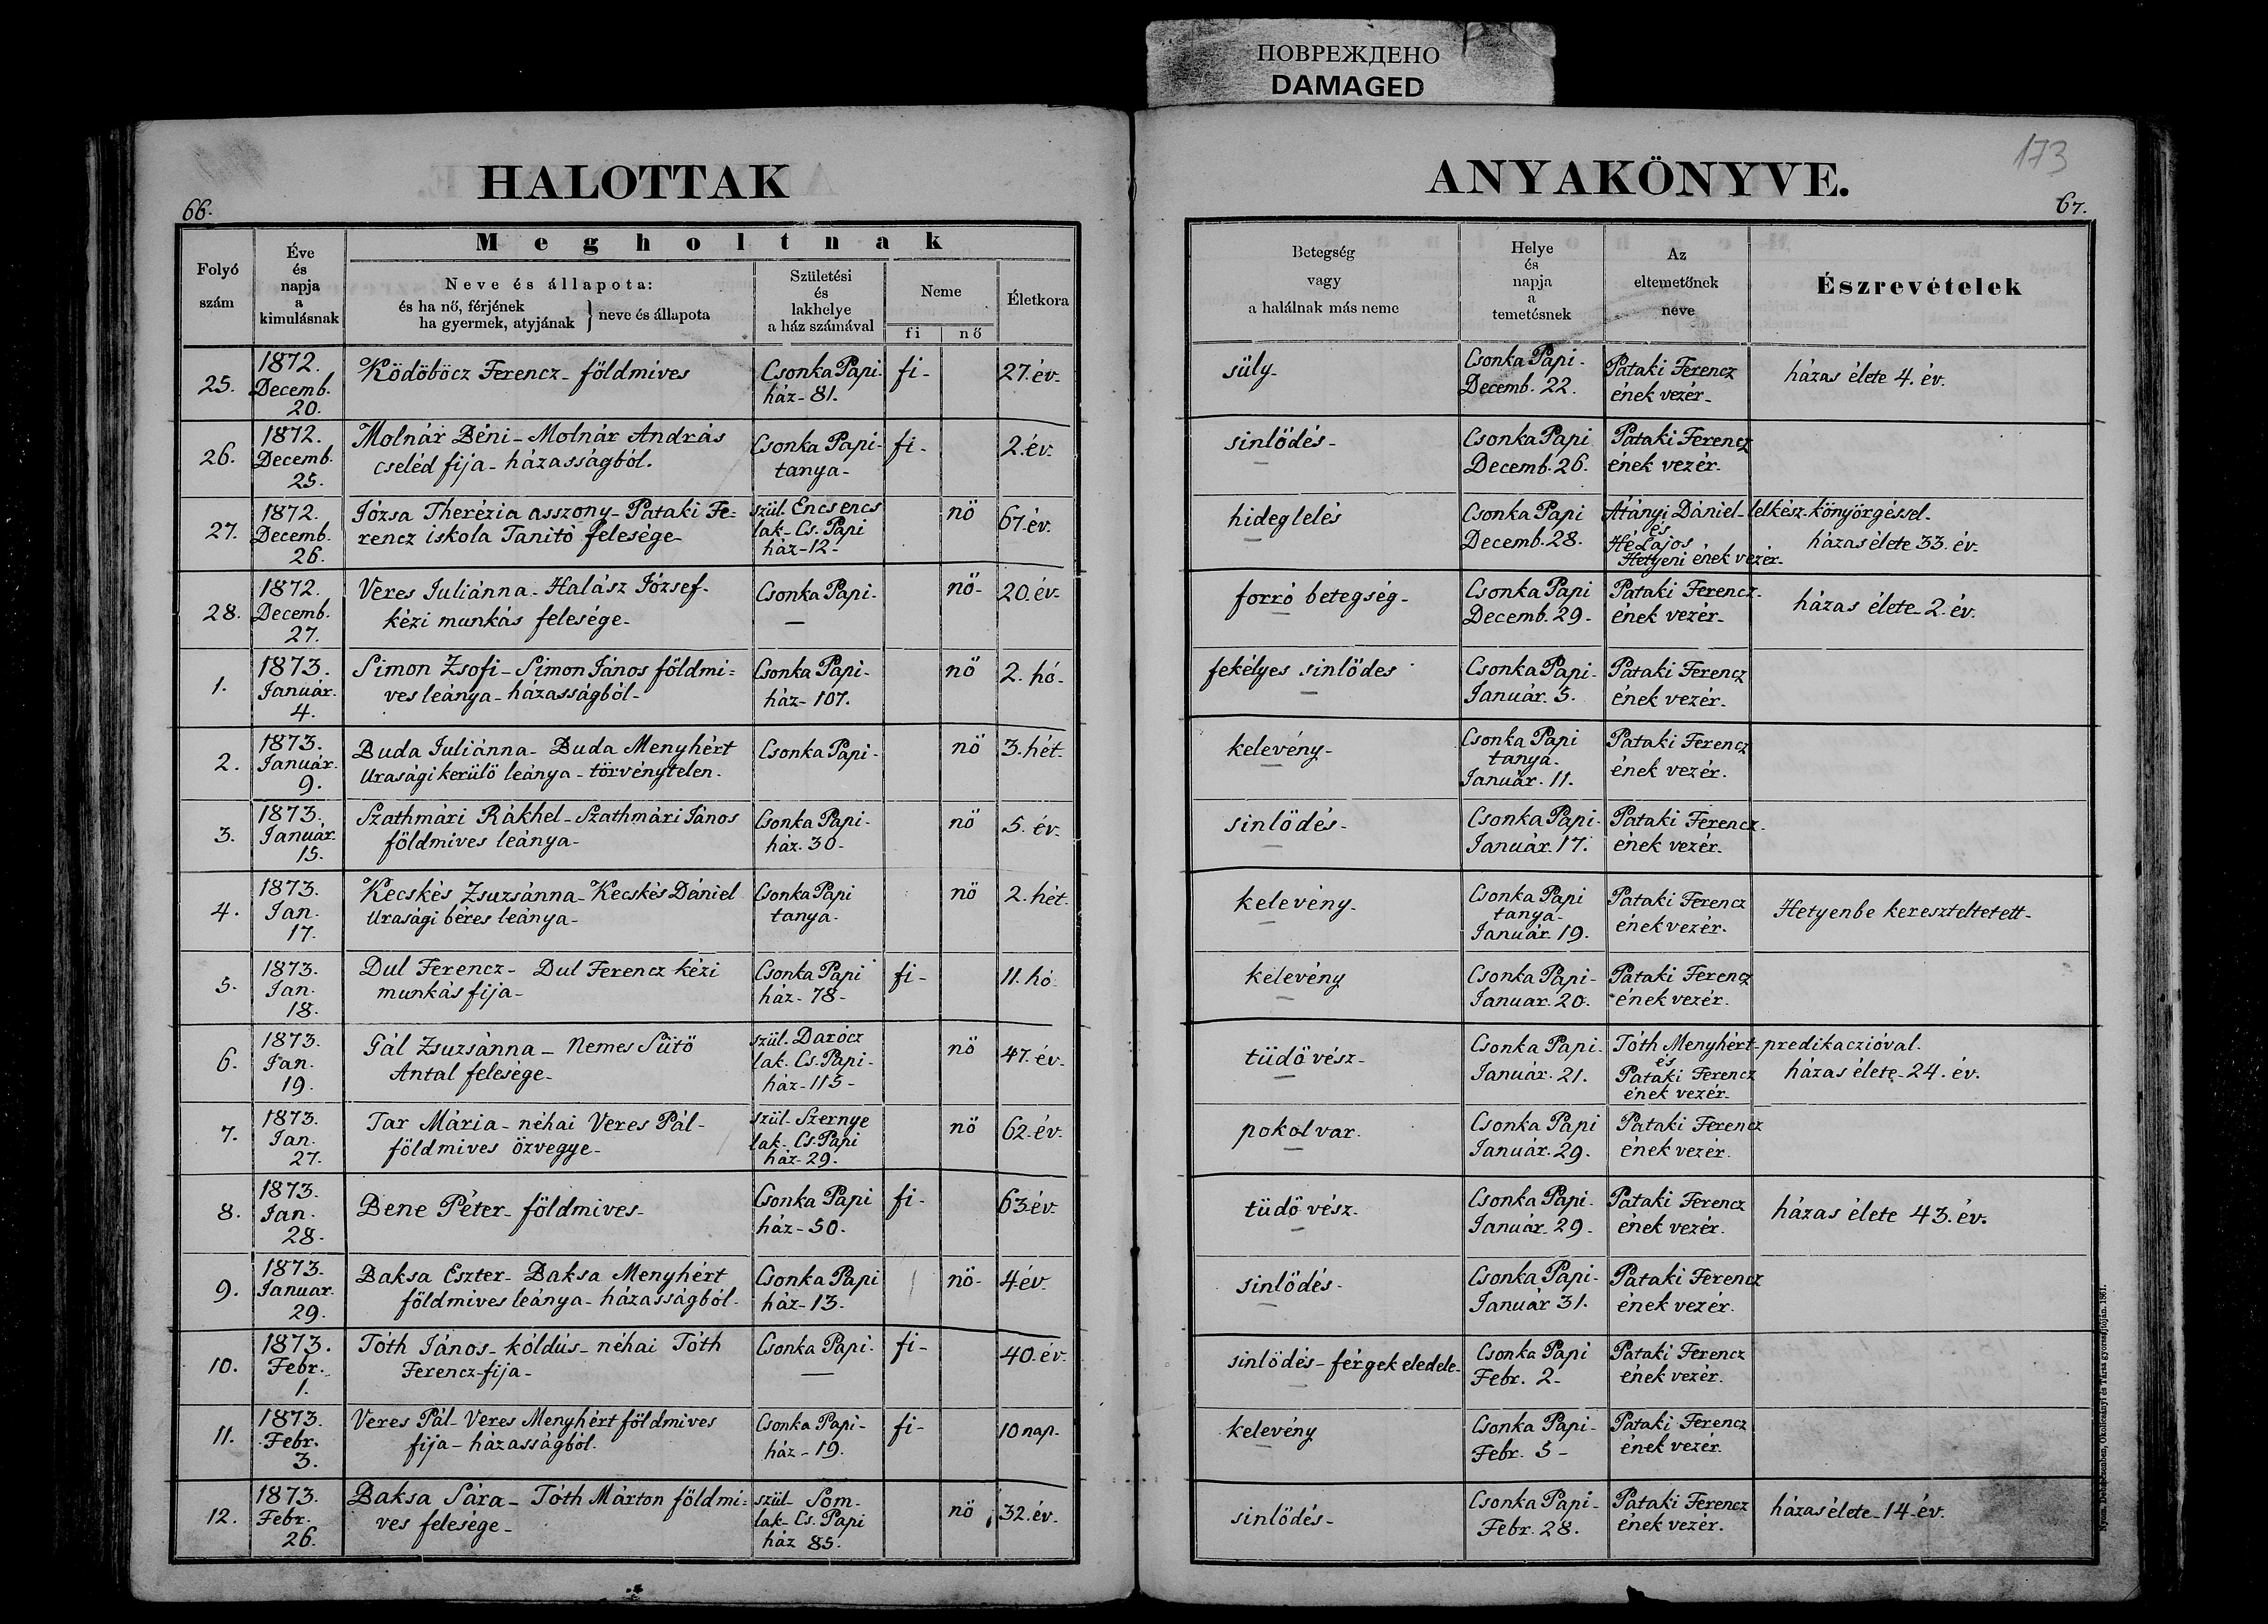 ПОВРЕЖДЕНО
DAMAGED
173
HALOTTAK
ANYAKÖNYVE.
66.
67.
Megholtnak
Folyó
szám
Éve
és
napja
a
kimulásnak
Neve és állapota:
és ha nő, férjének
ha gyermek, atyjának } neve és állapota
Születési
és
lakhelye
a ház számával
Neme
fi
nő
Életkora
Betegség
vagy
a halálnak más neme
Helye
és
napja
a
temetésnek
Az
eltemetőnek
neve
Észrevételek
25.
1872.
Decemb.
20.
Ködöböcz Ferencz - földmives
Csonka Papi-
ház - 81.
fi-
27. év-
süly-
Csonka Papi-
Decemb. 22.
Pataki Ferencz
ének vezér-
házas élete 4. év.
26.
1872.
Decemb.
25.
Molnár Béni - Molnár András
cseléd fija - házasságból.
Csonka Papi-
tanya-
fi-
2. év.
sinlödés-
Csonka Papi
Decemb. 26.
Pataki Ferencz
ének vezér.
27.
1872.
Decemb.
26.
Józsa Therézia asszony - Pataki Fe=
rencz iskola Tanitò felesége-
szül. Encsencs
lak - Cs. Papi
ház - 12-
nö
67. év.
hideglelés
Csonka Papi
Decemb. 28.
Átányi Dániel - lelkész - könyörgéssel.
és
Hé Lajos
Hetyeni ének vezér-
házas élete 33. év.
28.
1872.
Decemb.
27.
Veres Juliánna - Halász József-
kézi munkás felesége-
Csonka Papi-
—
nö-
20. év-
forró betegség-
Csonka Papi
Decemb. 29-
Pataki Ferencz-
ének vezér-
házas élete - 2. év.
1.
1873.
Január.
4.
Simon Zsofi - Simon János földmi=
ves leánya - házasságból-
Csonka Papi-
ház - 107.
nö
2. hó-
fekélyes sinlödes
Csonka Papi-
Január. 5.
Pataki Ferencz
ének vezér-
2.
1873.
Január.
9.
Buda Juliánna - Buda Menyhért
Urasági kerülö leánya - törvénytelen.
Csonka Papi-
nö
3. hét.
kelevény-
Csonka Papi
tanya.
Január. 11.
Pataki Ferencz
ének vezér.
3.
1873.
Január.
15.
Szathmári Rákhel - Szathmári János
földmives leánya-
Csonka Papi-
ház. 30-
nö
5. év.
sinlödés-
Csonka Papi-
Január. 17.
Pataki Ferencz-
ének vezér-
4.
1873.
Jan.
17.
Kecskés Zsuzsánna - Kecskés Dániel
Urasági béres leánya-
Csonka Papi
tanya.
nö
2. hét.
kelevény-
Csonka Papi
tanya-
Január. 19.
Pataki Ferencz
ének vezér.
Hetyenbe kereszteltetett-
5.
1873.
Jan.
18.
Dul Ferencz - Dul Ferencz kézi
munkás fija-
Csonka Papi
ház - 78-
fi-
11. hó.
kelevény
Csonka Papi-
Januar. 20.
Pataki Ferencz
ének vezér.
6.
1873.
Jan.
19.
Gál Zsuzsánna - Nemes Sütö
Antal felesége-
szül. Darócz
lak - Cs. Papi-
ház - 115-
nö
47. év-
tüdö vész-
Csonka Papi-
Január. 21.
Tóth Menyhért - predikaczióval.
és
Pataki Ferencz
ének vezér-
házas élete - 24. év.
7.
1873.
Jan.
27.
Tar Mária - néhai Veres Pál-
földmives özvegye-
szül - Szernye
lak - Cs. Papi
ház - 29.
nö
62 - év.
pokolvar.
Csonka Papi
Január. 29.
Pataki Ferencz
ének vezér.
8.
1873.
Jan.
28-
Bene Péter - földmives-
Csonka Papi
ház - 50.
fi-
63 - év.
tüdö vész-
Csonka Papi-
Január. 29-
Pataki Ferencz
ének vezér.
házas élete 43. év.
9.
1873.
Januar.
29.
Baksa Eszter - Baksa Menyhért
földmives leánya - házasságból-
Csonka Papi
ház - 13.
nö-
4 - év.
sinlödés-
Csonka Papi-
Január 31.
Pataki Ferencz
ének vezér.
10.
1873.
Febr.
1.
Tóth János - kóldús - néhai Tóth
Ferencz - fija-
Csonka Papi-
—
fi-
40. év.
sinlödés - férgek eledele-
Csonka Papi
Febr. 2-
Pataki Ferencz
ének vezér.
11.
1873.
Febr.
3.
Veres Pál - Veres Menyhért földmives
fija - házasságból.
Csonka Papi-
ház - 19.
fi-
10 nap.
kelevény
Csonka Papi-
Febr. 5-
Pataki Ferencz
ének vezér.
12.
1873.
Febr.
26.
Baksa Sára - Tóth Márton földmi=
ves felesége-
szül - Som-
lak - Cs. Papi
ház 85.
nö
32. év.
sinlödés-
Csonka Papi-
Febr. 28.
Pataki Ferencz
ének vezér.
házas élete - 14 - év.